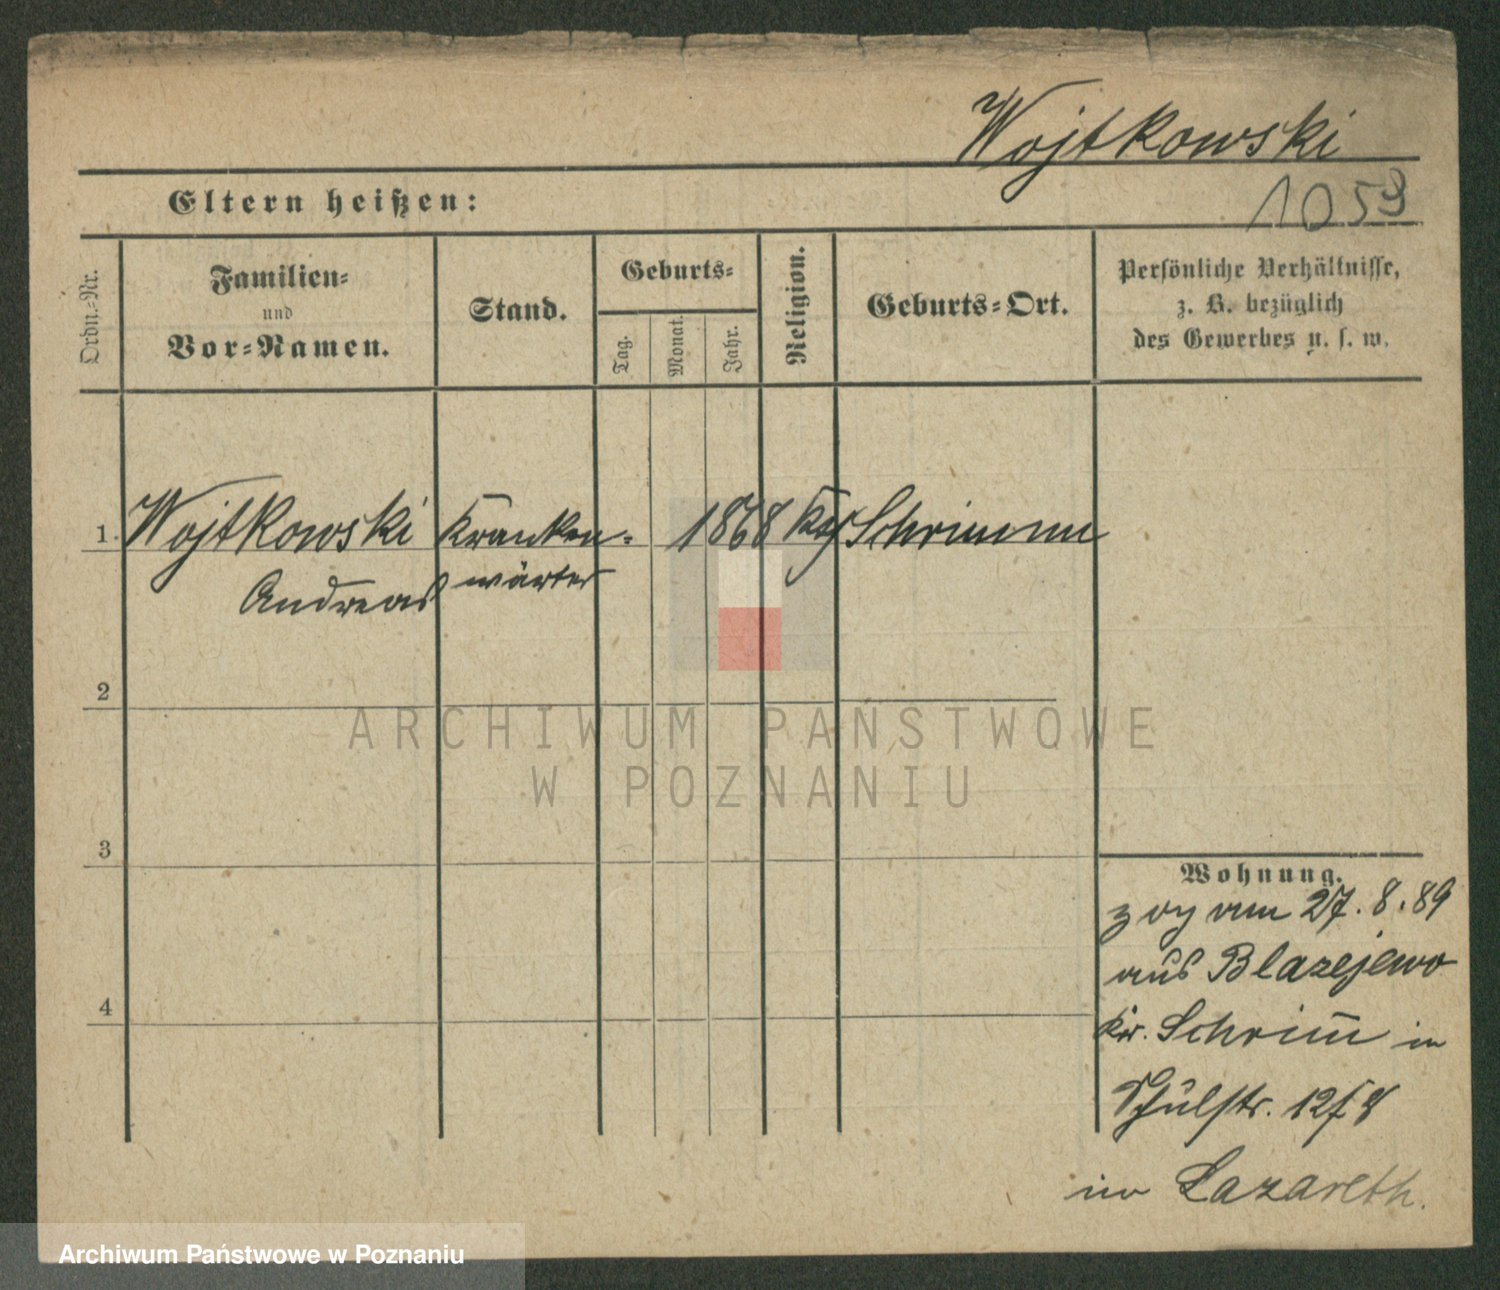 Wojtkowski
1059
Eltern heißen:
Ordn.-Nr.
Familien-
und
Vor-Namen.
Stand.
Geburts-
Tag.
Monat.
Jahr.
Religion.
Geburts-Ort.
Persönliche Verhältnisse,
z. B. bezüglich
des Gewerbes u. s. w.
1. Wojtkowski Kranken- 1868 Schrimm
Andreas wärter
2
3
4
ARCHIWUM PAŃSTWOWE
W POZNANIU
Wohnung.
zog am 27.8.89
aus Blazejewo
Kr. Schrim̅ in
Schulstr. 12/
im Lazareth.
Archiwum Państwowe w Poznaniu